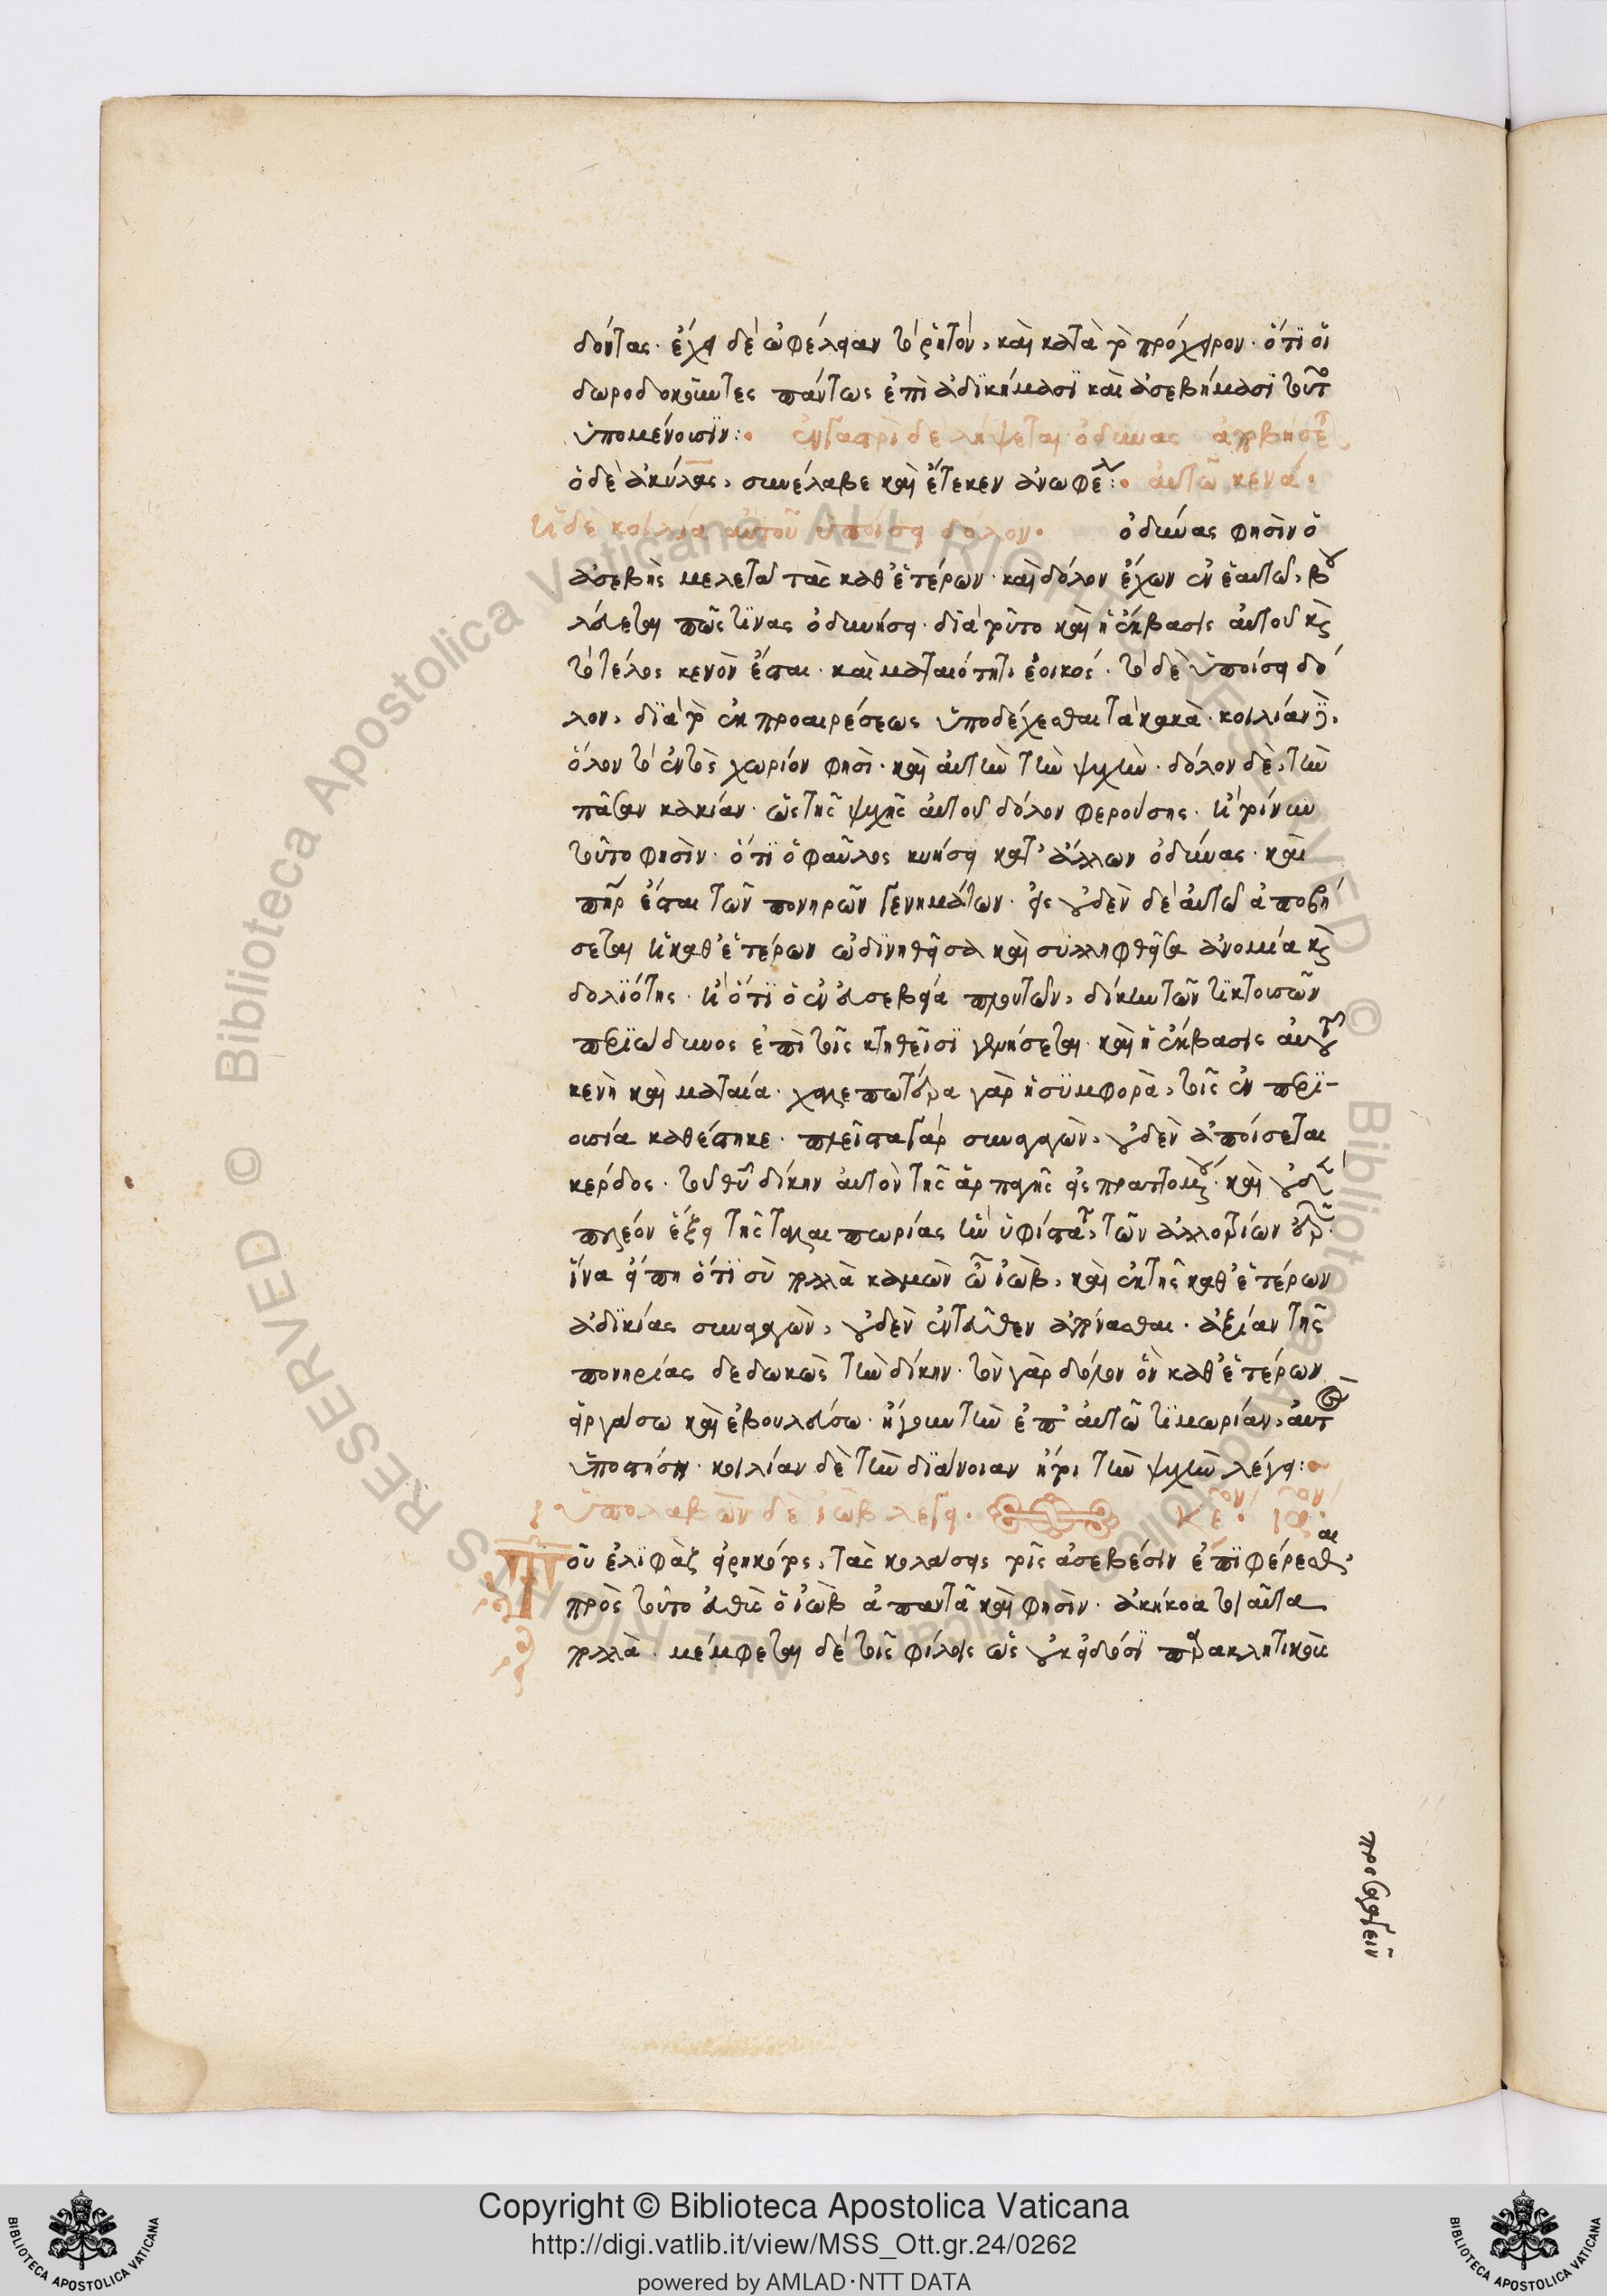 δόντας· ἔχει δὲ ὠφέλειαν τὸ ῥητὸν, καὶ κατὰ τὸ πρόχειρον· ὅτι οἱ
δωροδοκοῦντες πάντως ἐπὶ ἀδικήμασι καὶ ἀσεβήμασι τοῦτ
ὑπομένουσιν: ἐν γαστρὶ δὲ λήψεται ὀδύνας ἀποβήσετ
ὁ δὲ ἀκύλας, συνέλαβε καὶ ἔτεκεν ἀνωφελ: αὐτῶ κενά.
ἡ δὲ κοιλία αὐτοῦ ὑποίσει δόλον. ὀδύνας φησὶν ὁ
ἀσεβὴς μελετᾶ τὰς καθ' ἑτέρων· καὶ δόλον ἔχων ἐν ἑαυτῶ, βου
λεύεται πῶς τινας ὀδυνήσει· διὰ τοῦτο καὶ ἡ ἔκβασις αὐτοῦ καὶ
τὸ τέλος κενὸν ἔσται· καὶ ματαιότητι ἐοικός· τὸ δὲ ὑποίσει δό
λον, διὰ τὸ ἐκ προαιρέσεως ὑποδέχεσθαι τὰ κακὰ· κοιλίαν
ὅλον τὸ ἐντὸς χωρίον φησὶ· καὶ αὐτὴν τὴν ψυχὴν· δόλον δὲ, τὴν
πᾶσαν κακίαν· ὡς τῆς ψυχῆς αὐτοῦ δόλον φερούσης· ἢ τοίνυν
τοῦτο φησὶν· ὅτι ὁ φαῦλος κυήσει κατ' ἄλλων ὀδύνας· καὶ
πατὴρ ἔσται τῶν πονηρῶν γεννημάτων· εἰς οὐδὲν δὲ αὐτῶ ἀποβή
σεται ἡ καθ' ἑτέρων ὠδινηθεῖσα καὶ συλληφθεῖσα ἀνομία καὶ
δολιότης· ἢ ὅτι ὁ ἐν ἀσεβεία πλουτῶν, δίκην τῶν τικτουσῶν
περιώδυνος ἐπὶ τοῖς κτηθεῖσι γενήσεται· καὶ ἡ ἔκβασις αὐτοῦ
κενὴ καὶ ματαία· χαλεπωτέρα γὰρ ἡ συμφορὰ, τοῖς ἐν περι-
ουσία καθέστηκε· πλεῖστα γὰρ συναγαγὼν, οὐδὲν ἀποίσεται
κέρδος· τοῦ θεοῦ δίκην αὐτὸν τῆς ἁρπαγῆς εἰσπραττομένου· καὶ οὐδὲν
πλέον ἕξει τῆς ταλαιπωρίας ἣν ὑφίσταται, τῶν ἀλλοτρίων ἐρῶν.
ἵνα εἴπη ὅτι σὺ πολλὰ καμὼν ὦ ἰὼβ, καὶ ἐκ τῆς καθ' ἑτέρων
ἀδικίας συναγαγὼν, οὐδὲν ἐντεῦθεν ἀπώνασθαι· ἀξίαν τῆς
πονηρίας δεδωκὼς τὴν δίκην· τὸν γὰρ δόλον ὃν καθ' ἑτέρων
εἰργάσω καὶ ἐβουλεύσω· ἤγουν τὴν ἐπ' αὐτῶ τιμωρίαν, αὐτὸς
ὑποστήση· κοιλίαν δὲ τὴν διάνοιαν ἤτοι τὴν ψυχὴν λέγει:
ὑπολαβὼν δὲ ἰὼβ λέγει. κε. ιϛ.
τοῦ ἐλιφὰζ εἰρηκότος, τὰς κολάσεις τοῖς ἀσεβέσιν ἐπιφέρεσθαι,
πρὸς τοῦτο εὐθὺς ὁ ἰὼβ ἀπαντᾶ καὶ φησὶν· ἀκήκοα τοιαῦτα
πολλὰ· μέμφεται δὲ τοῖς φίλοις ὡς οὐκ εἰδόσι παρακλητικοὺς
προσαγαγεῖν
Copyright © Biblioteca Apostolica Vaticana
http://digi.vatlib.it/view/MSS_Ott.gr.24/0262
powered by AMLAD·NTT DATA